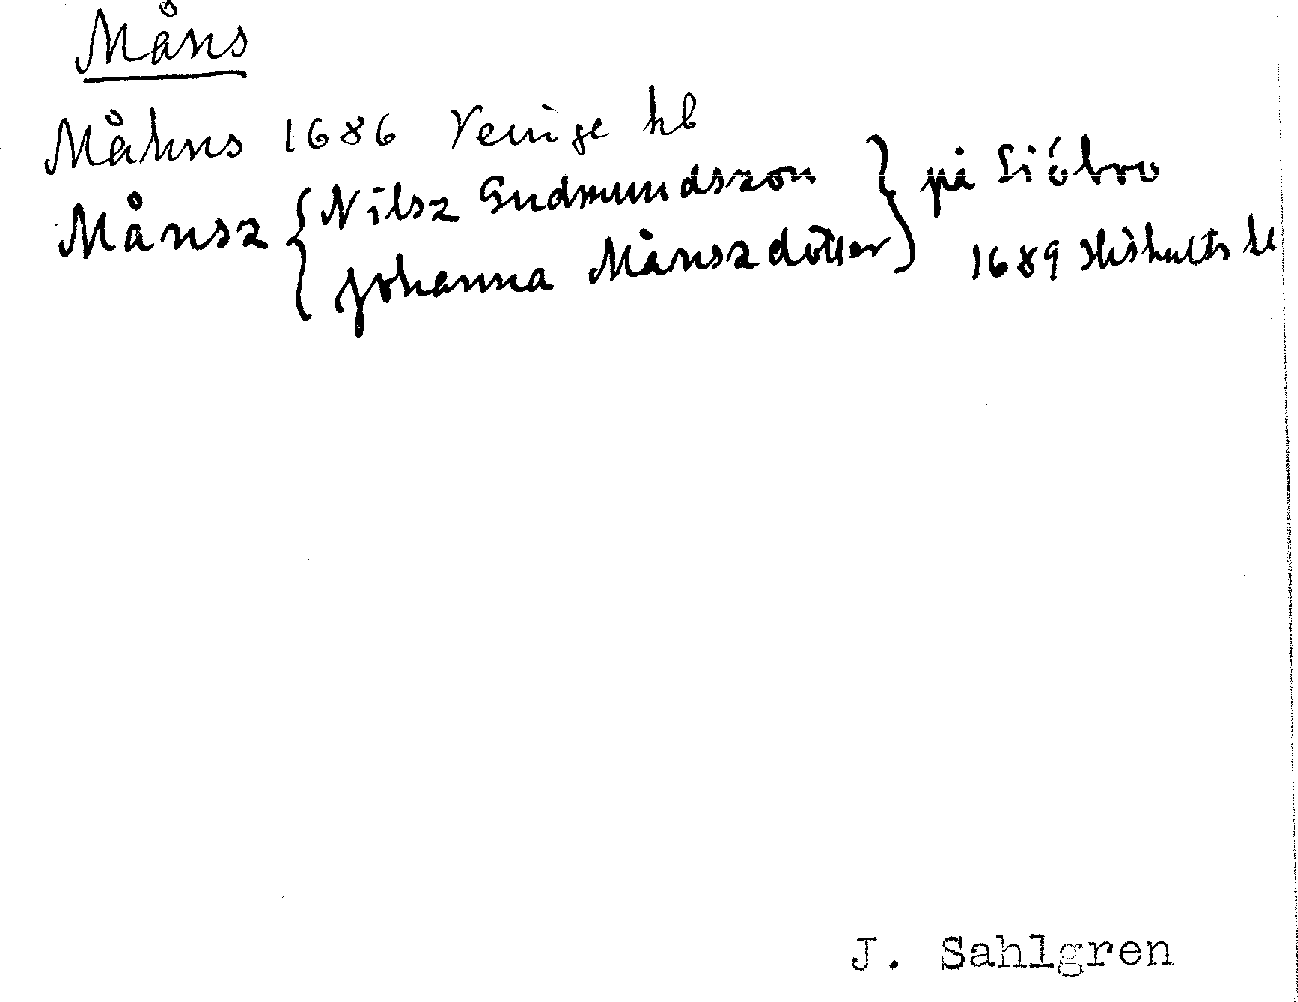 Måns
Måhns 1686 Veinge kb
Månsz { Nilsz Gudmundszon } på Siöbro
Johanna Månszdotter 1689 Hishults kb
J. Sahlgren